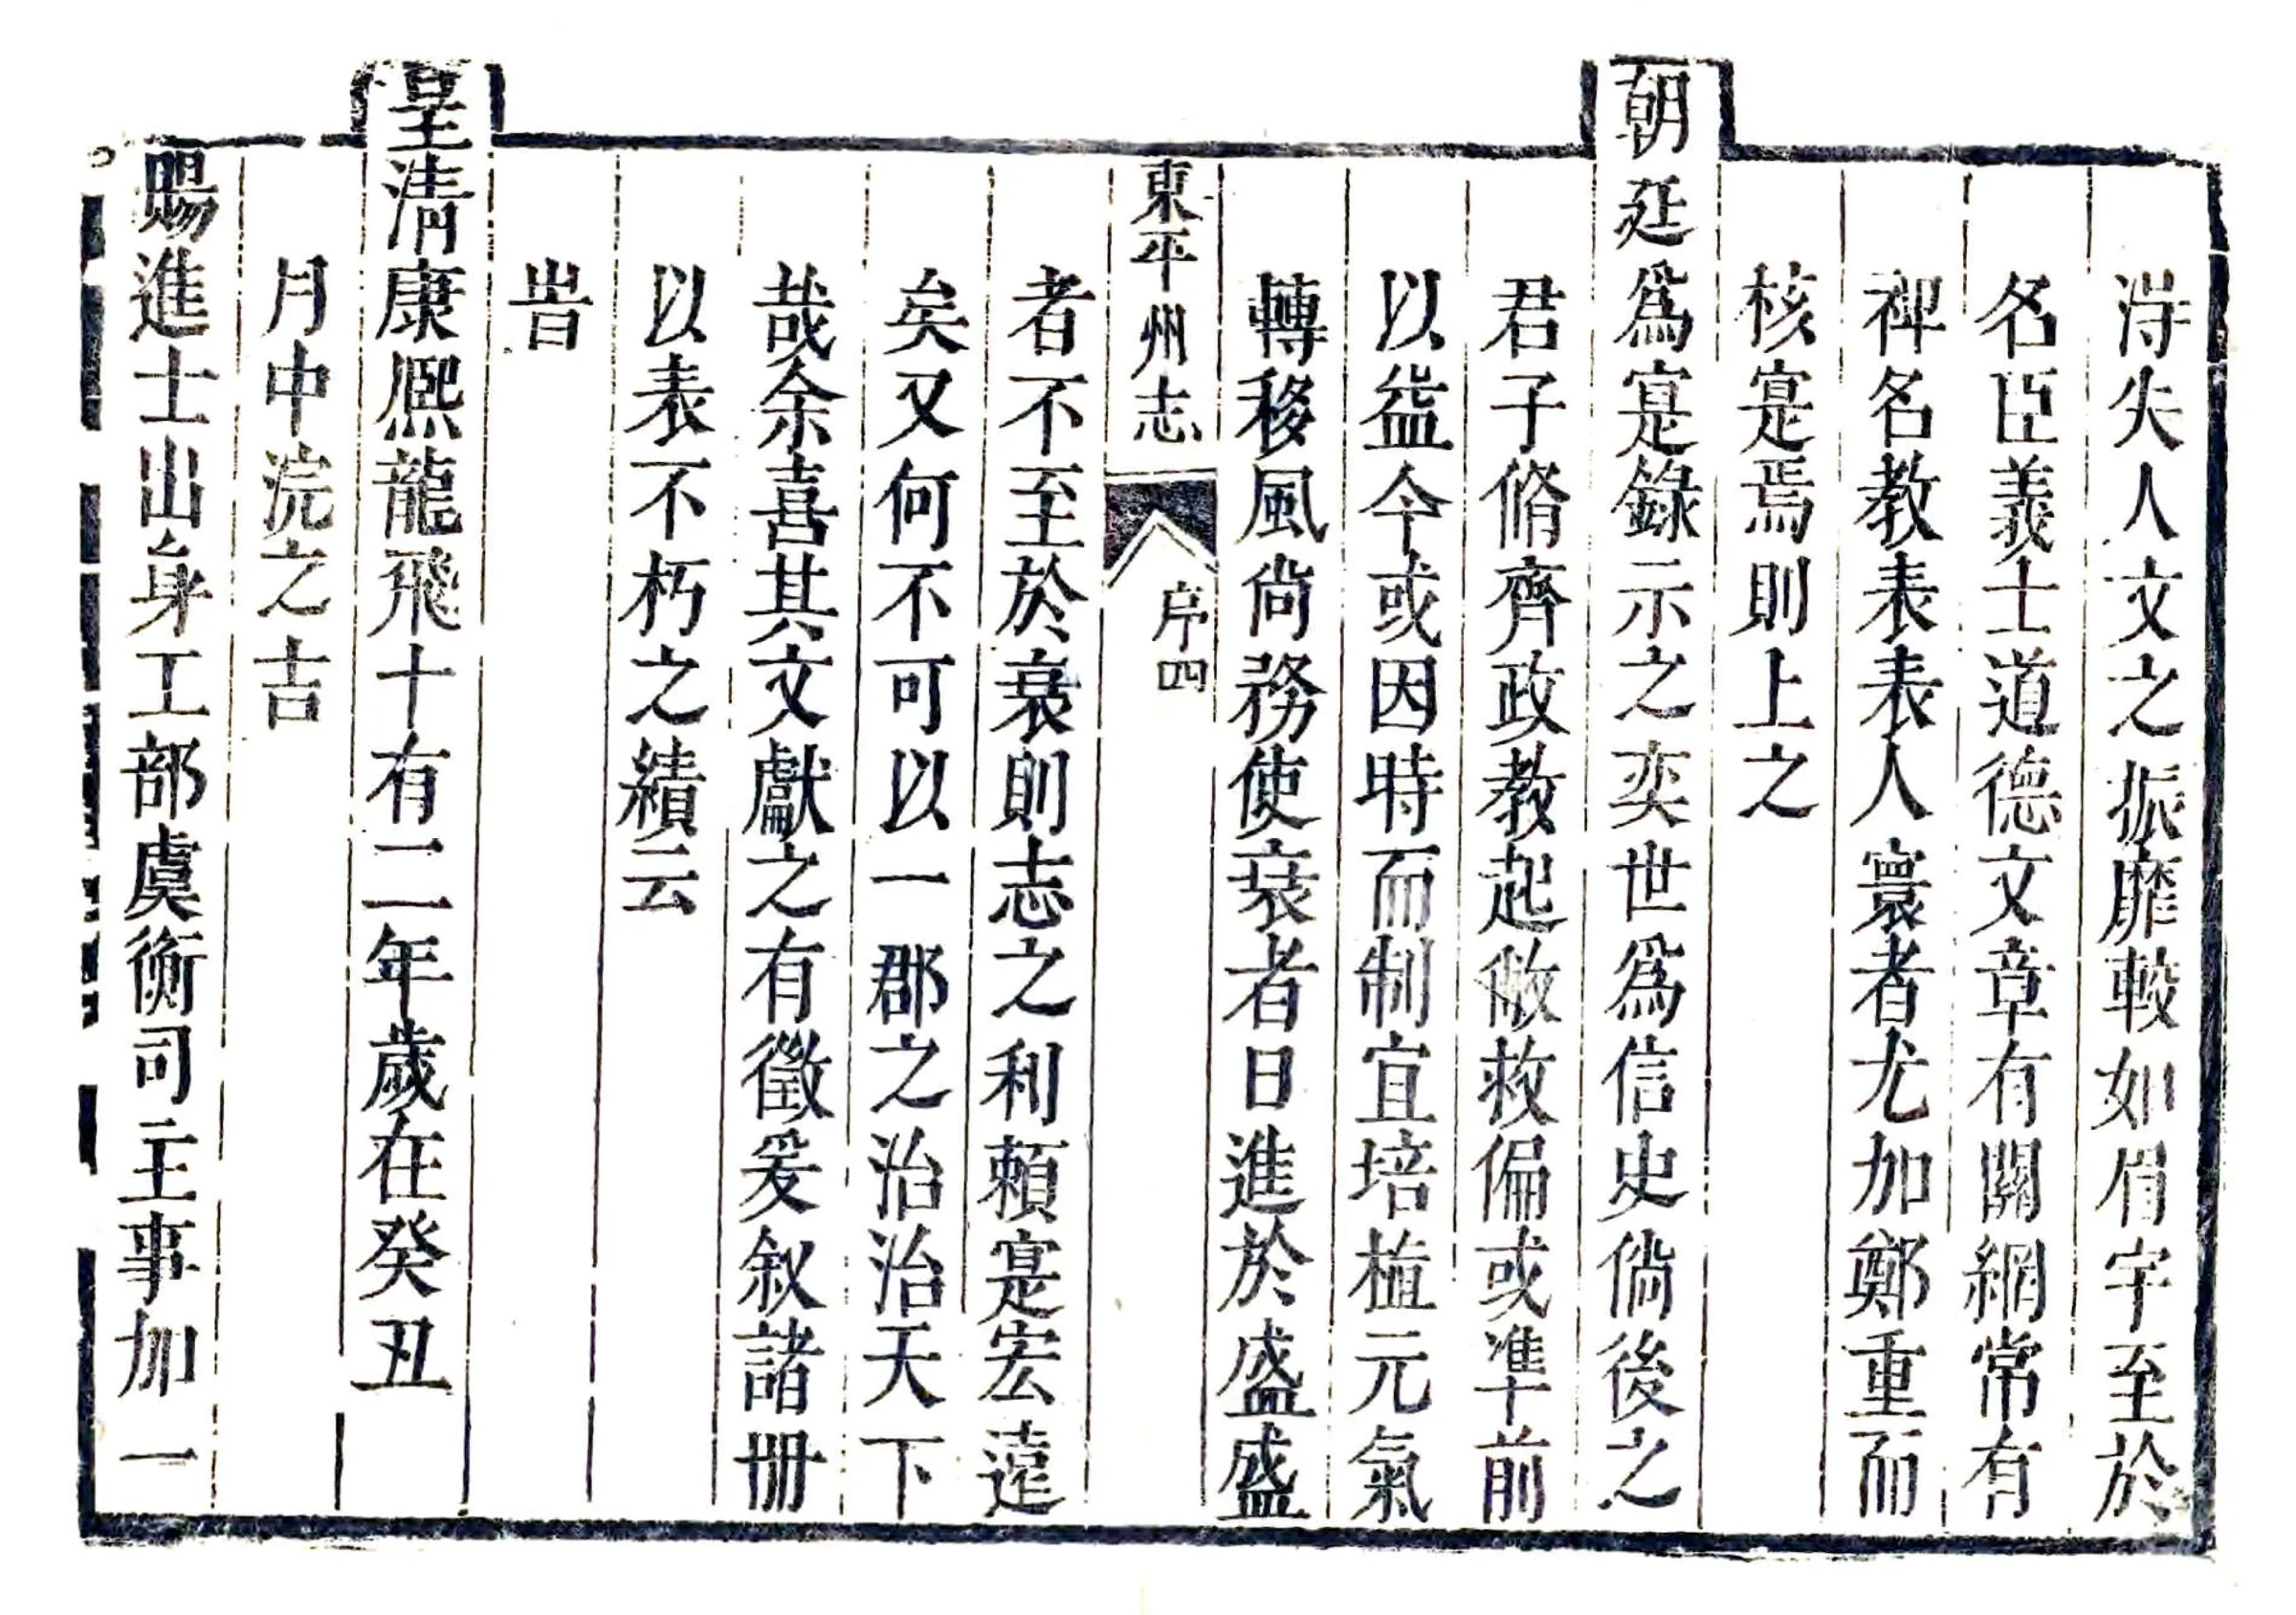 淂失人文之振靡較如眉宇至於
名臣義士道德文章有關綱常有
裨名教表表人寰者尤加鄭重而
核寔焉則上之
朝廷為寔錄示之奕世為信史倘後之
君子脩齊政教起敝救偏或準前
以益今或因時而制宜培植元氣
轉移風尙務使衰者日進於盛盛
東平州志 序 四
者不至於衰則志之利賴寔宏遠
矣又何不可以一郡之治治天下
哉余喜其文獻之有徵爰叙諸冊
以表不朽之績云
旹
皇清康熙龍飛十有二年歲在癸丑
月中浣之吉
賜進士出身工部虞衡司主事加一